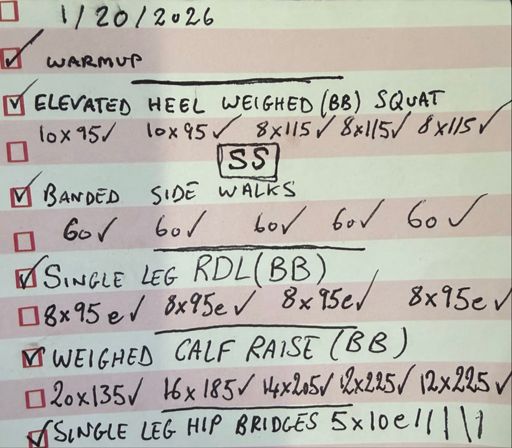 1/20/2026
WARMUP
ELEVATED HEEL WEIGHED (BB) SQUAT
10x95✓ 10x95✓ 8x115✓ 8x115✓ 8x115✓
SS
BANDED SIDE WALKS
60✓ 60✓ 60✓ 60✓ 60✓
SINGLE LEG RDL (BB)
8x95e✓ 8x95e✓ 8x95e✓ 8x95e✓
WEIGHED CALF RAISE (BB)
20x135✓ 16x185✓ 14x205✓ 12x225✓ 12x225✓
SINGLE LEG HIP BRIDGES 5x10e | | | | |